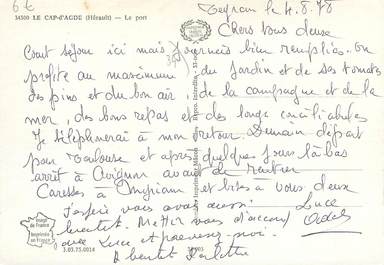 6 €
34300 LE CAP-D'AGDE (Hérault) — Le port
Teyran le 4.8.78
Chers vous deux
Court séjour ici mais journées bien remplies. On
profite au maximum du jardin et de ses tomates
des pins et du bon air, de la campagne et de la
mer, des bons repas et des longs conciliabules
Je téléphonerai à mon retour. Demain départ
pour Toulouse et après quelques jours là-bas
arrêt à Avignon avant de rentrer
Caresses à Myriam et bises à vous deux
J'espère vous avoir aussi Luce
bientôt. Mettez vous d'accord Odile
avec Luce et prévenez-moi.
A bientôt Paulette
Image de France
Imprimée en France
3.03.75.0014